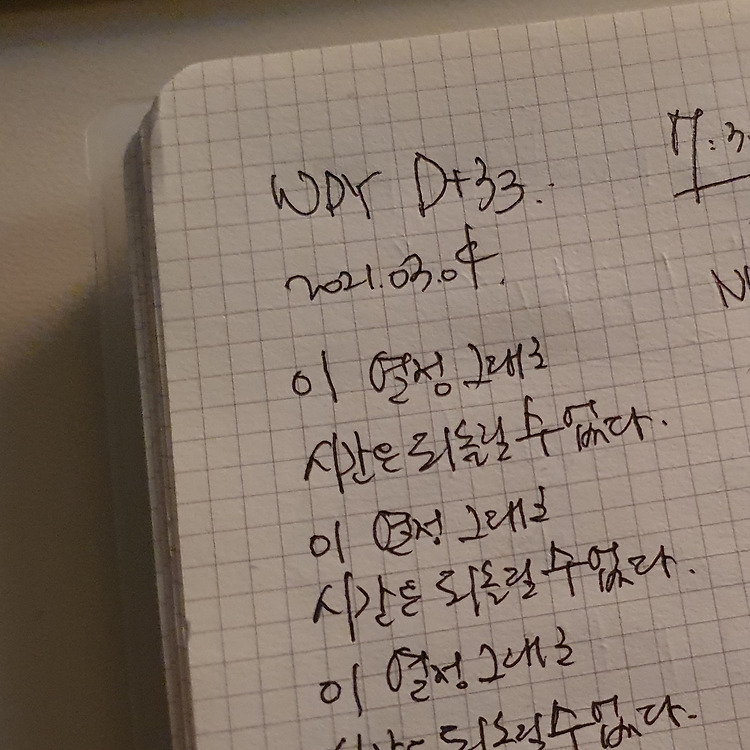 WDY D+33.
2021.03.04.
이 열정 그대로
시간은 되돌릴 수 없다.
이 열정 그대로
시간은 되돌릴 수 없다.
이 열정 그대로
시간은 되돌릴 수 없다.